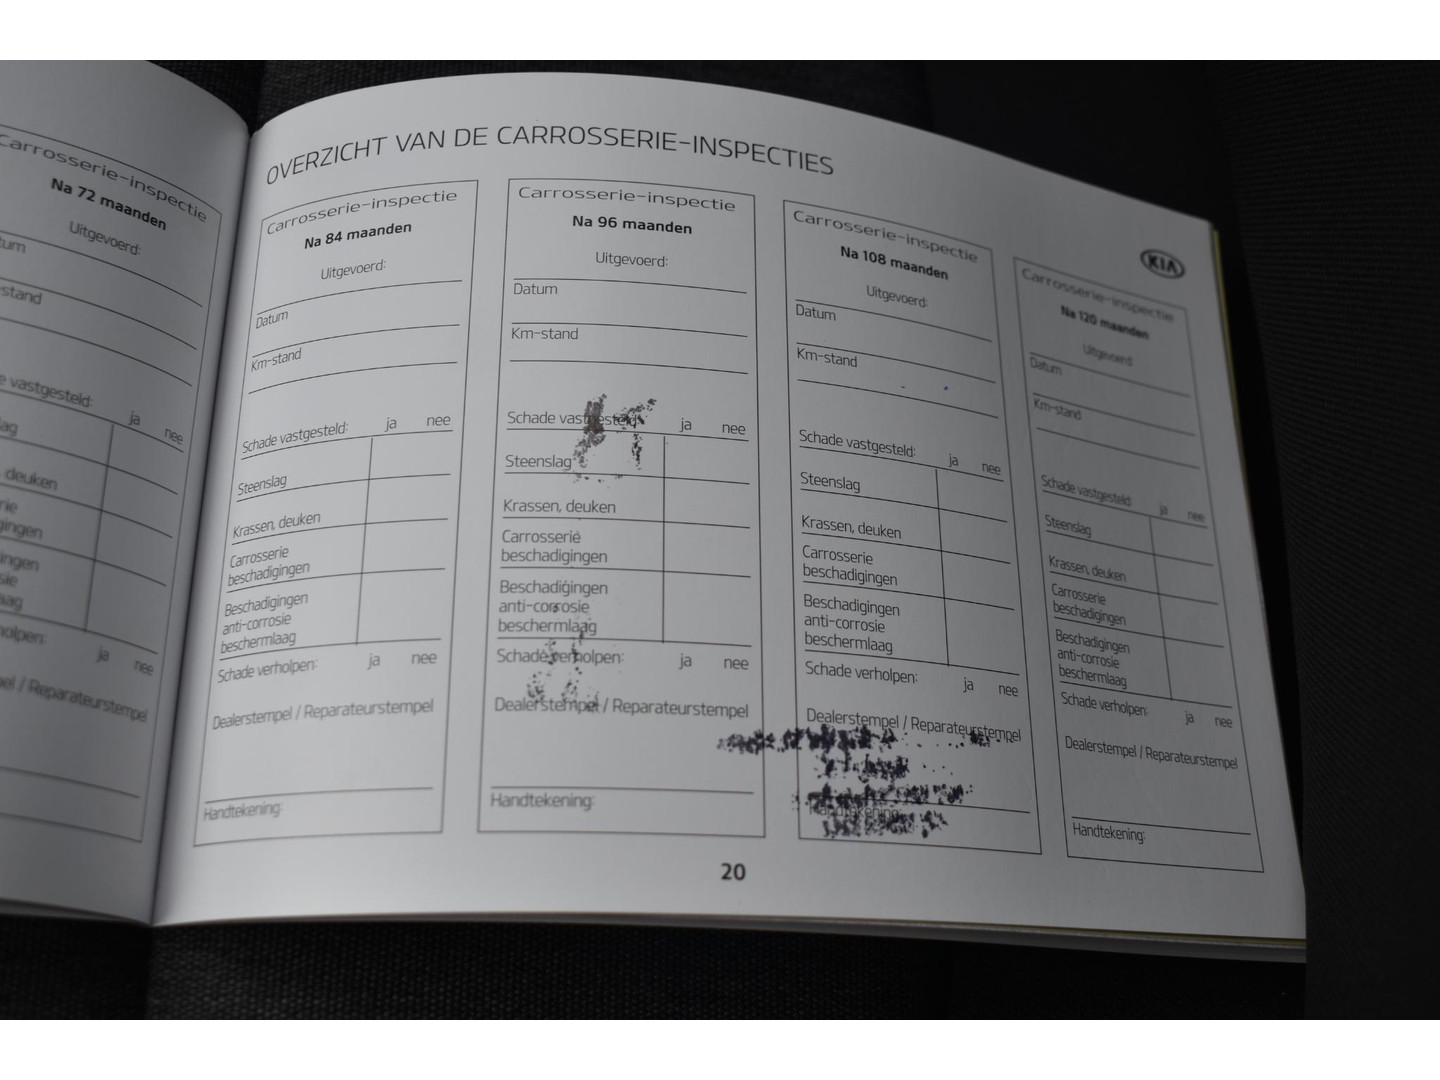 OVERZICHT VAN DE CARROSSERIE-INSPECTIES
KIA
Carrosserie-inspectie
Na 72 maanden
Uitgevoerd:
vastgesteld: ja nee
deuken
ja nee
/ Reparateurstempel
Carrosserie-inspectie
Na 84 maanden
Uitgevoerd:
Datum
Km-stand
Schade vastgesteld: ja nee
Steenslag
Krassen, deuken
Carrosserie
beschadigingen
Beschadigingen
anti-corrosie
beschermlaag
Schade verholpen: ja nee
Dealerstempel / Reparateurstempel
Handtekening:
Carrosserie-inspectie
Na 96 maanden
Uitgevoerd:
Datum
Km-stand
Schade vastgesteld: ja nee
Steenslag
Krassen, deuken
Carrosserie
beschadigingen
Beschadigingen
anti-corrosie
beschermlaag
Schade verholpen: ja nee
Dealerstempel / Reparateurstempel
Handtekening:
Carrosserie-inspectie
Na 108 maanden
Uitgevoerd:
Datum
Km-stand
Schade vastgesteld: ja nee
Steenslag
Krassen, deuken
Carrosserie
beschadigingen
Beschadigingen
anti-corrosie
beschermlaag
Schade verholpen: ja nee
Dealerstempel / Reparateurstempel
Handtekening:
Carrosserie-inspectie
Na 120 maanden
Uitgevoerd:
Datum
Km-stand
Schade vastgesteld: ja nee
Steenslag
Krassen, deuken
Carrosserie
beschadigingen
Beschadigingen
anti-corrosie
beschermlaag
Schade verholpen: ja nee
Dealerstempel / Reparateurstempel
Handtekening:
20